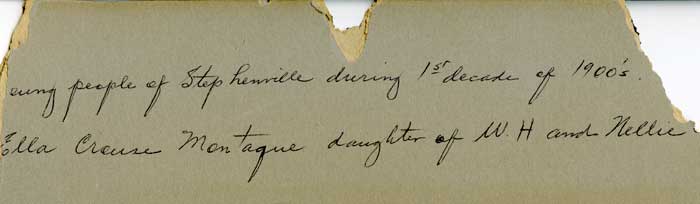 oung people of Stephenville during 1st decade of 1900's.
Ella Crouse Montague daughter of W.H and Nellie